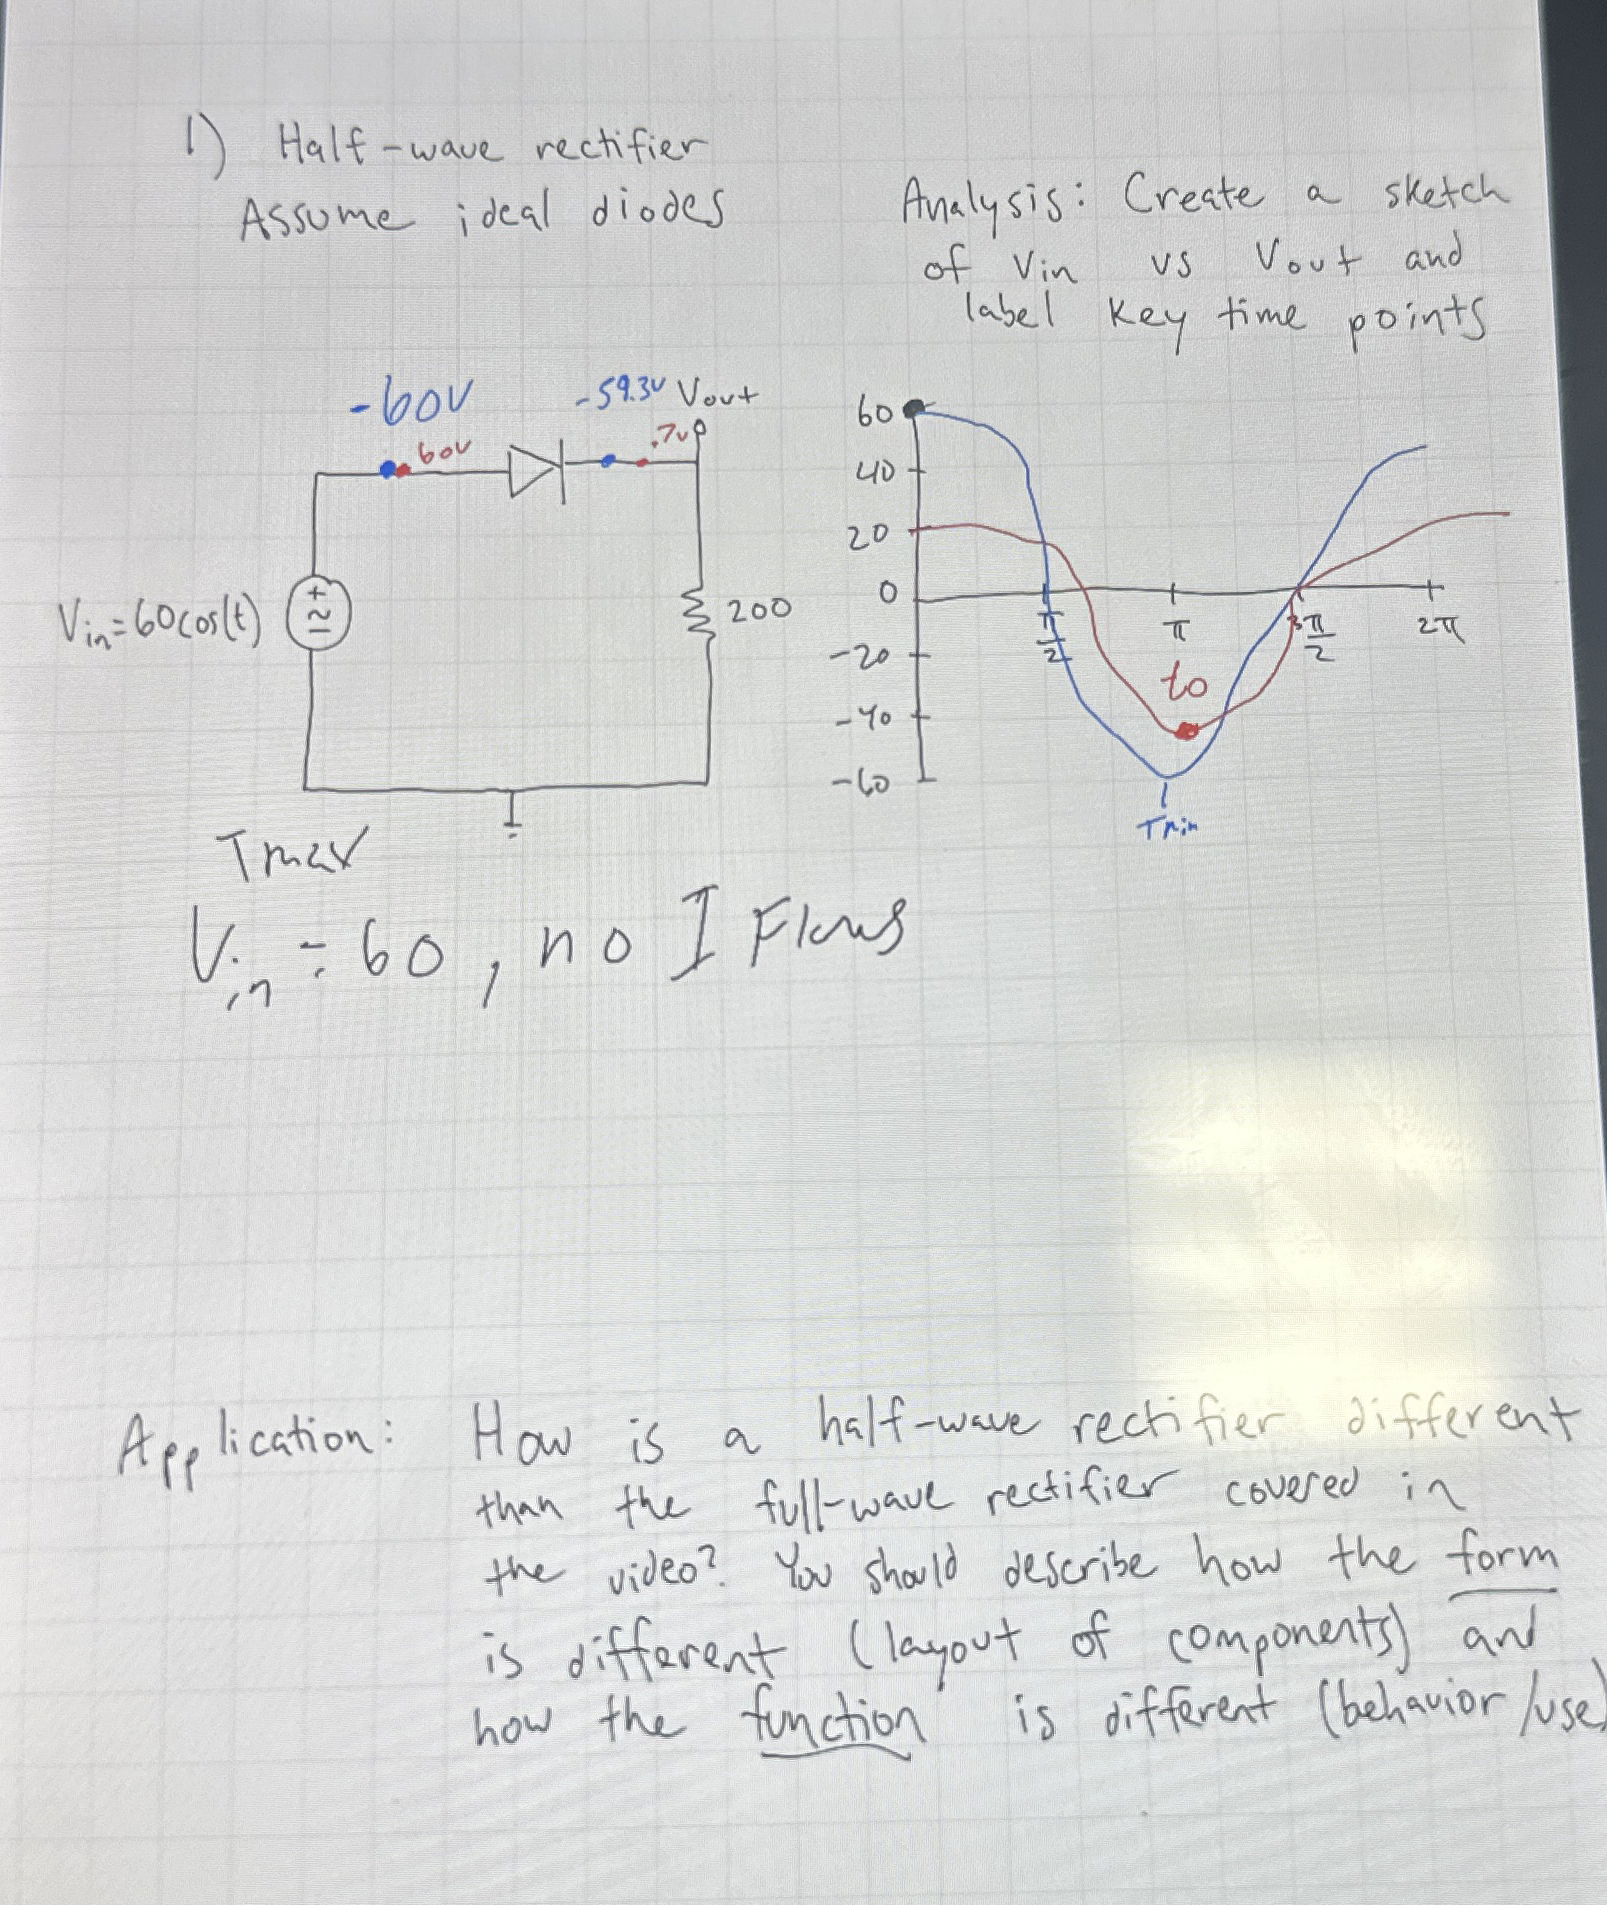 1) Half-wave rectifier
Assume ideal diodes
Analysis: Create a sketch
of Vin vs Vout and
label key time points
-60V
60V
-59.3V
.7V
Vout
Vin=60cos(t)
+
200
60
40
20
0
-20
-40
-60
π/2
π
3π/2
2π
to
Tmin
Tmax
Vin = 60, no I Flows
Application: How is a half-wave rectifier different
than the full-wave rectifier covered in
the video? You should describe how the form
is different (layout of components) and
how the function is different (behavior/use)